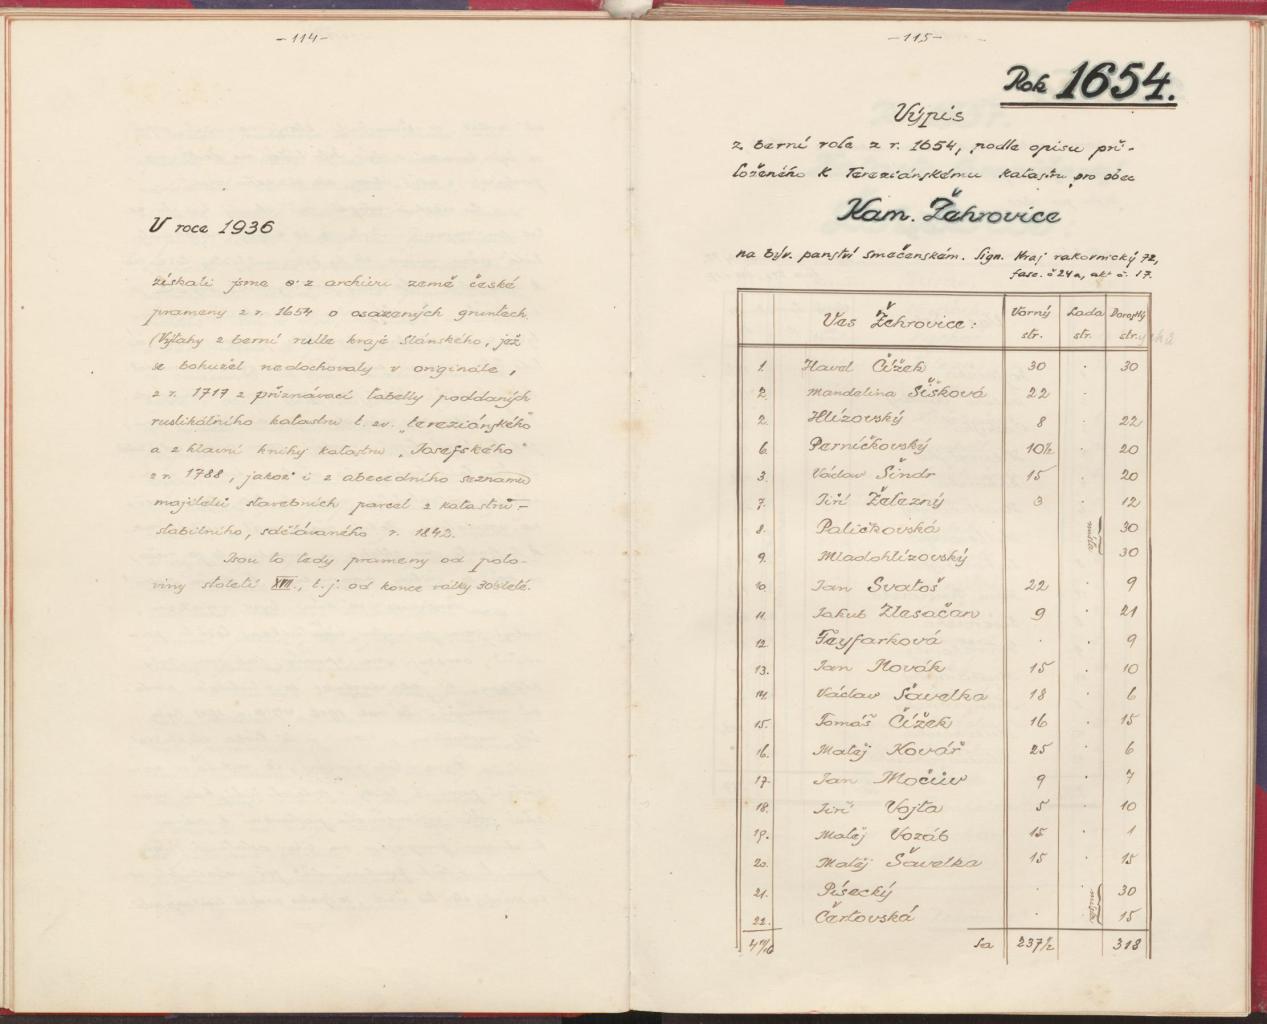 -114-
V roce 1936
získali jsme z archivu země české
prameny z r. 1654 o osazených gruntech.
(Výtahy z berní rulle kraje Slánského, jež
se bohužel nedochovaly v originále,
z r. 1717 z přiznávací tabelly poddaných
rustikálního katastru t. zv. "tereziánského"
a z hlavní knihy katastru "Josefského"
z r. 1788, jakož i z abecedního seznamu
majitelů stavebních parcel z katastru
stabilního, sdělávaného r. 1842.
Jsou to tedy prameny od polo-
viny století XVII., t. j. od konce války 30tileté.
-115-
Rok 1654.
Výpis
z berní role z r. 1654, podle opisu při-
loženého k Tereziánskému katastru pro obec
Kam. Žehrovice
na býv. panství smečenském. Sign. Kraj rakovnický 72,
fasc. č 24a, akt č. 17.
Ves Žehrovice: Vorný str. Lada str. Dorostlý str.
1. Havel Čížek 30 . 30
2. Mandelina Šišková 22 .
2. Hlízovský 8 . 22
6. Perníčkovský 10½ . 20
3. Václav Šindr 15 . 20
7. Jiří Železný 3 . 12
8. Paličkovská 30
9. Mladohlízovský 30
10. Jan Svatoš 22 . 9
11. Jakub Zlesačan 9 . 21
12. Feyfarková . . 9
13. Jan Novák 15 . 10
14. Václav Šavelka 18 . 6
15. Tomáš Čížek 16 . 15
16. Matěj Kovář 25 . 6
17. Jan Močův 9 . 7
18. Jiří Vojta 5 . 10
19. Matěj Vozáb 15 . 1
20. Matěj Šavelka 15 . 15
21. Písecký . 30
22. Čertovská . 15
Sa 237½ 318